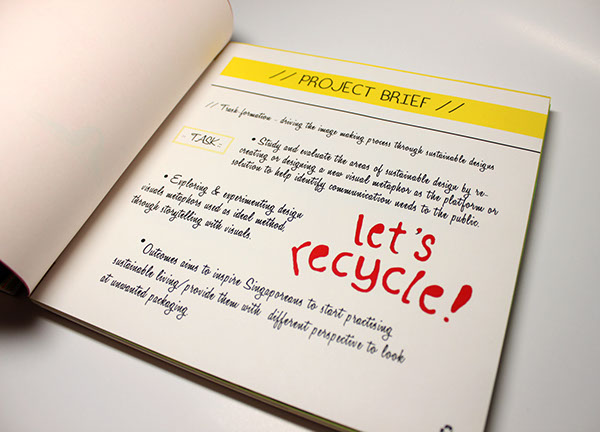 // PROJECT BRIEF //
// Trash-formation - driving the image making process through sustainable designs
- TASK:
• Study and evaluate the areas of sustainable design by re-
creating or designing a new visual metaphor as the platform or
solution to help identify communication needs to the public.
• Exploring & experimenting design
visuals metaphors used as ideal method,
through storytelling with visuals.
let's
recycle!
•Outcomes aims to inspire Singaporeans to start practising
sustainable living/provide them with different perspective to look
at unwanted packaging